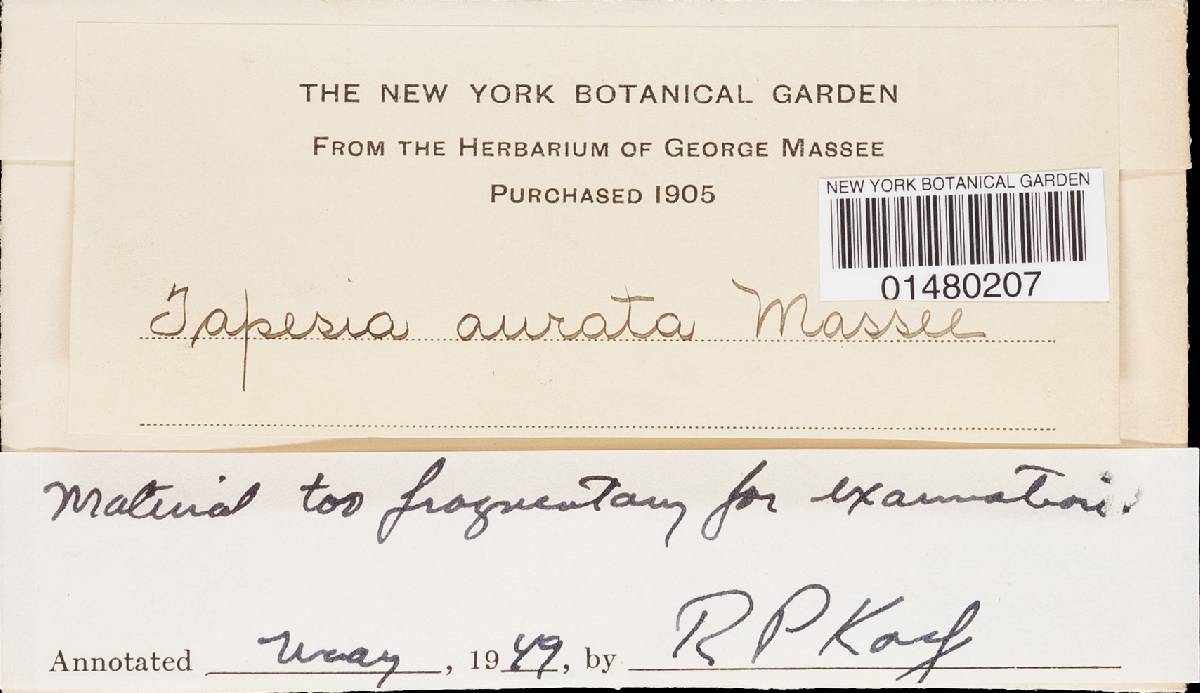 THE NEW YORK BOTANICAL GARDEN
FROM THE HERBARIUM OF GEORGE MASSEE
PURCHASED 1905
NEW YORK BOTANICAL GARDEN
01480207
Tapesia aurata Massee
Material too fragmentary for examination.
Annotated May, 1949, by R P Korf